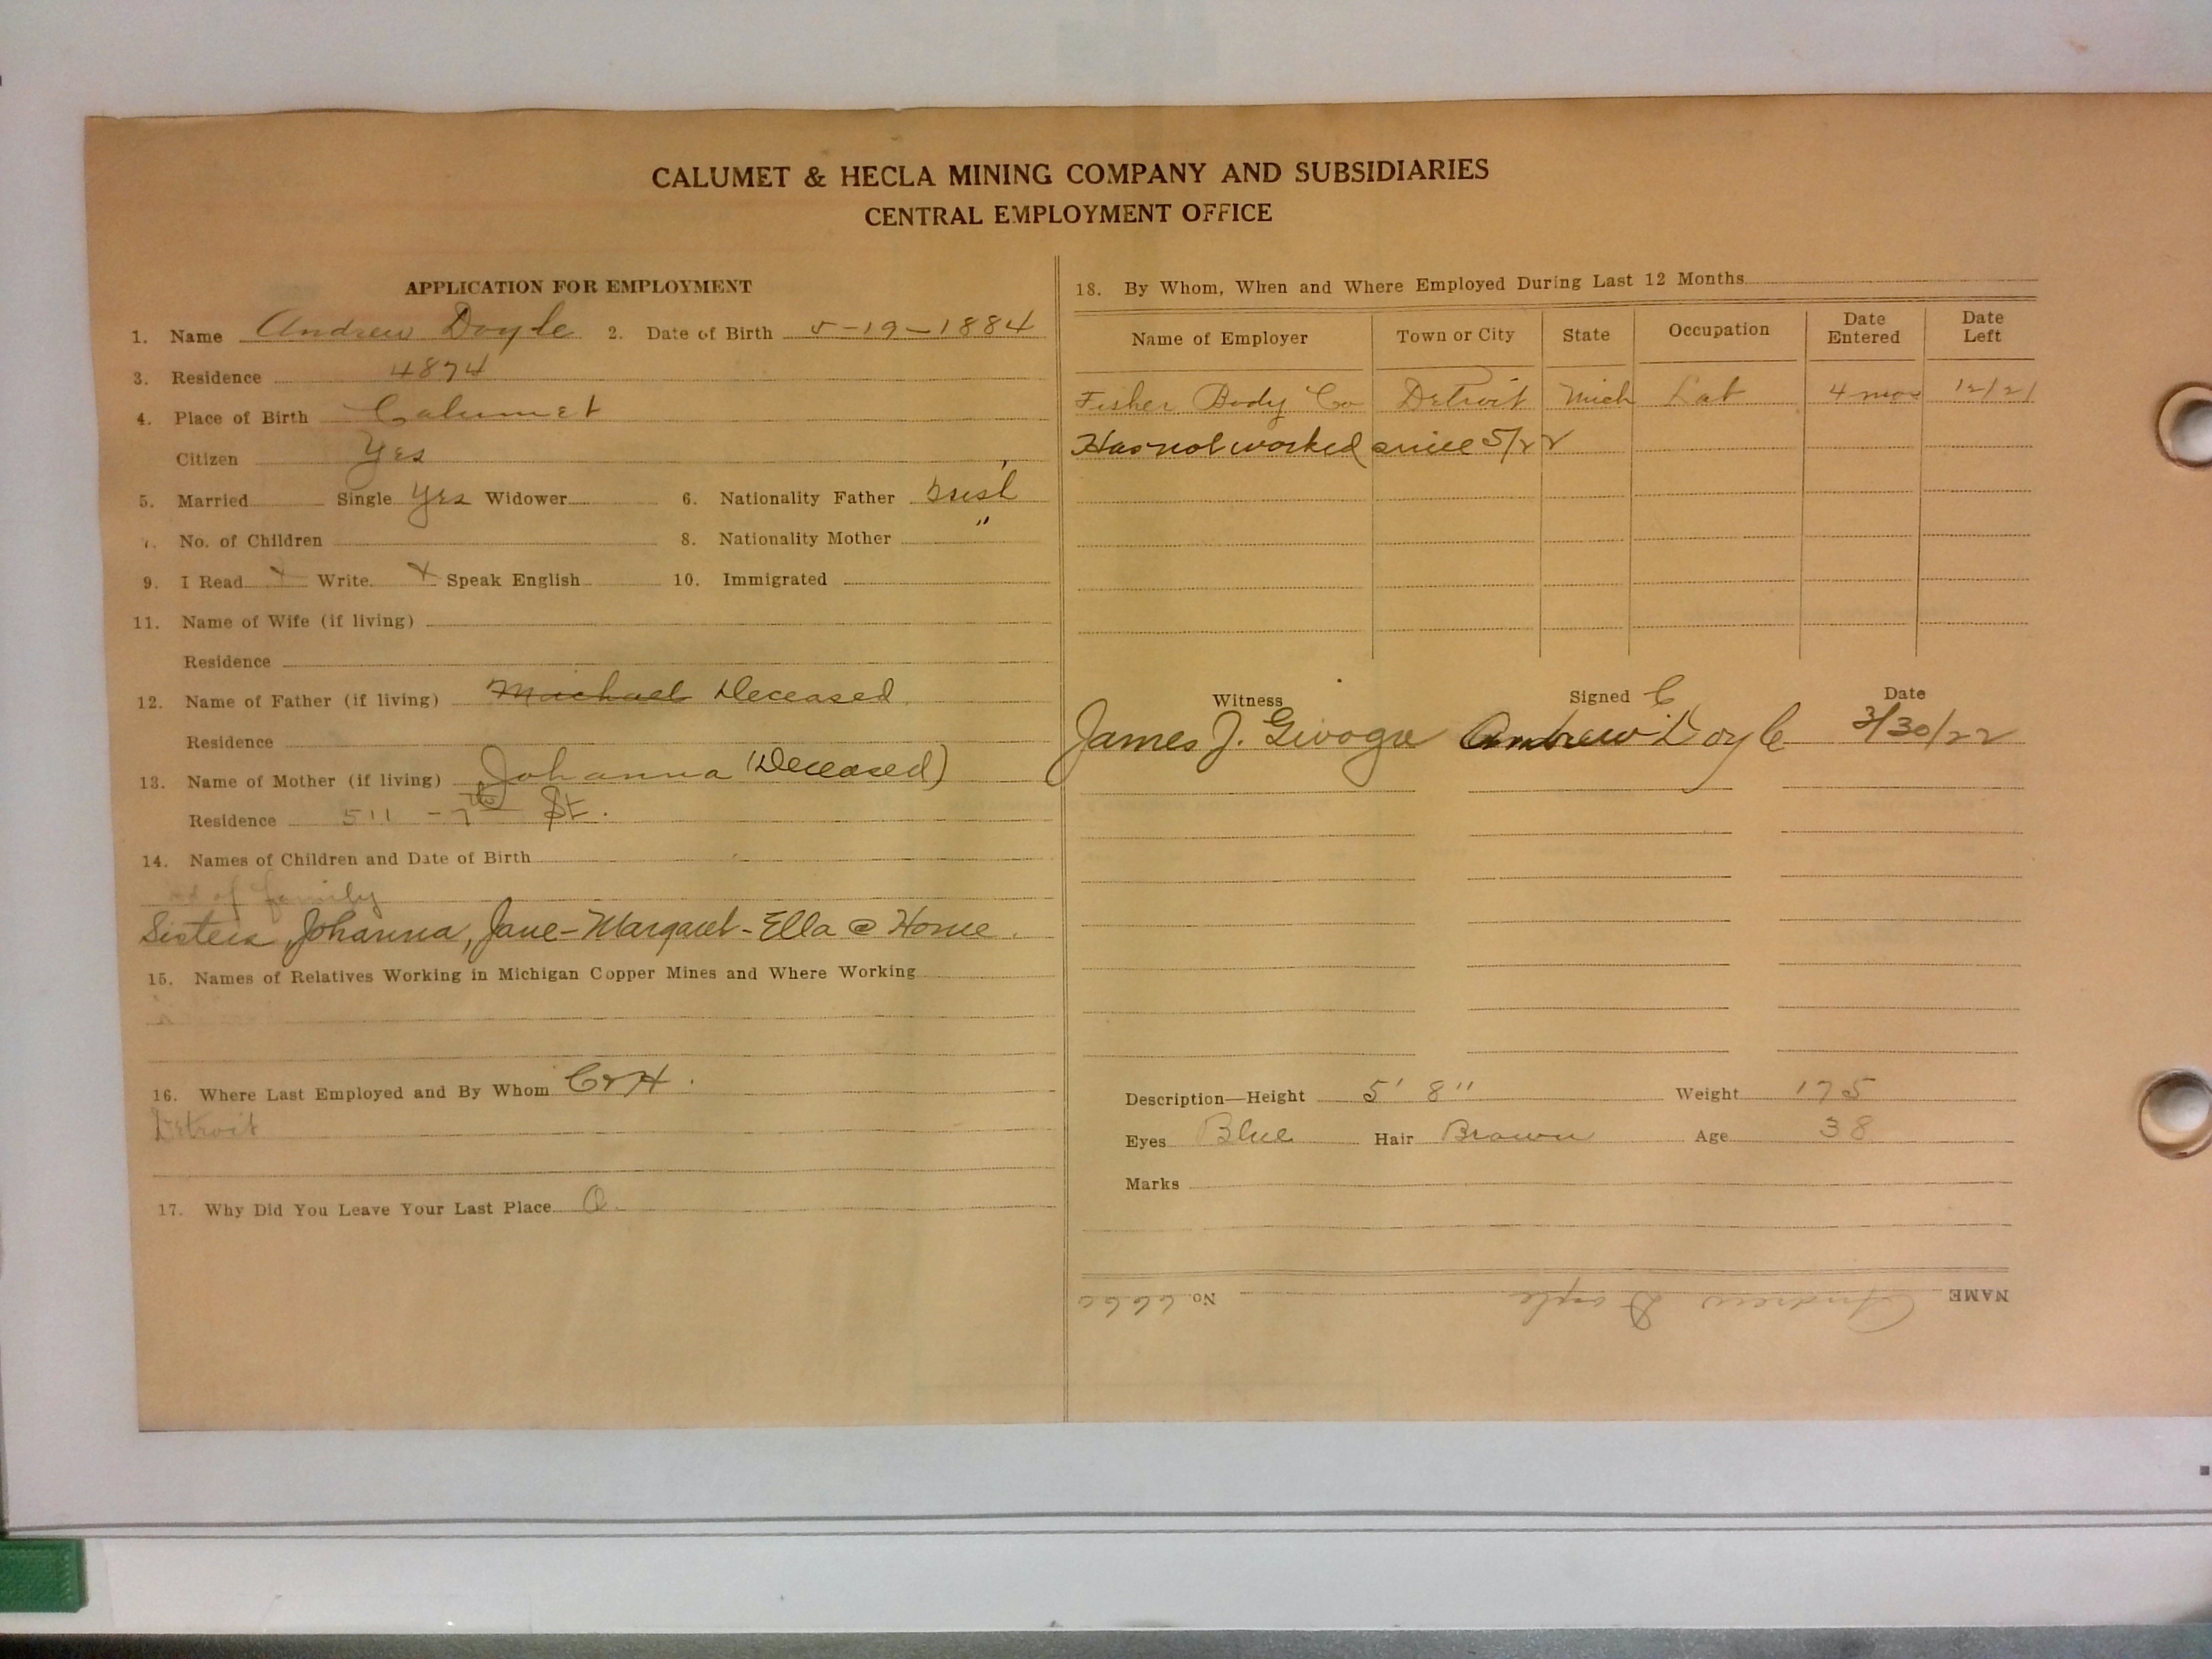 CALUMET & HECLA MINING COMPANY AND SUBSIDIARIES
CENTRAL EMPLOYMENT OFFICE
APPLICATION FOR EMPLOYMENT
1. Name Andrew Doyle 2. Date of Birth 5-19-1884
3. Residence 4874
4. Place of Birth Calumet
Citizen Yes
5. Married Single Yes Widower 6. Nationality Father Irish
7. No. of Children 8. Nationality Mother "
9. I Read x Write x Speak English 10. Immigrated
11. Name of Wife (if living)
Residence
12. Name of Father (if living) Michael Deceased
Residence
13. Name of Mother (if living) Johanna (Deceased)
Residence 511 - 7th St.
14. Names of Children and Date of Birth
of family
Sisters, Johanna, Jane-Margaret-Ella @ Home.
15. Names of Relatives Working in Michigan Copper Mines and Where Working
16. Where Last Employed and By Whom C&H.
Detroit
17. Why Did You Leave Your Last Place Q.
18. By Whom, When and Where Employed During Last 12 Months
Name of Employer Town or City State Occupation Date Entered Date Left
Fisher Body Co Detroit Mich Lab 4 mos 12/21
Has not worked since 5/22
Witness Signed C Date
James J. Andrew Doyle 3/30/22
Description—Height 5' 8" Weight 175
Eyes Blue Hair Brown Age 38
Marks
NAME Andrew Doyle No. 6666